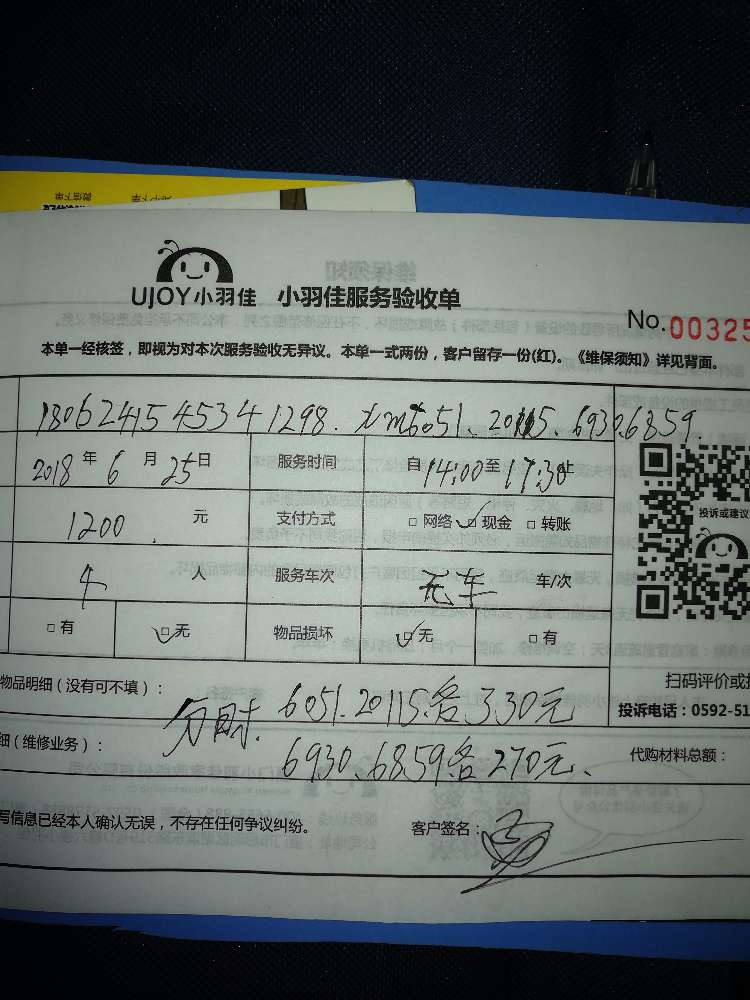 UJOY小羽佳 小羽佳服务验收单
No.00325
本单一经核签，即视为对本次服务验收无异议。本单一式两份，客户留存一份(红)。《维保须知》详见背面。
1806241545341298. xm6051、20115、6930.6859.
2018年6月25日 服务时间 自14:00至17:30止
1200. 元 支付方式 □网络 □现金 □转账
4 人 服务车次 无车 车/次
投诉或建议
□有 □无 物品损坏 □无 □有
扫码评价或投
物品明细（没有可不填）：
投诉电话：0592-51
分时. 6051.20115各330元
细（维修业务）： 代购材料总额：
6930.6859各270元、
写信息已经本人确认无误，不存在任何争议纠纷。 客户签名：